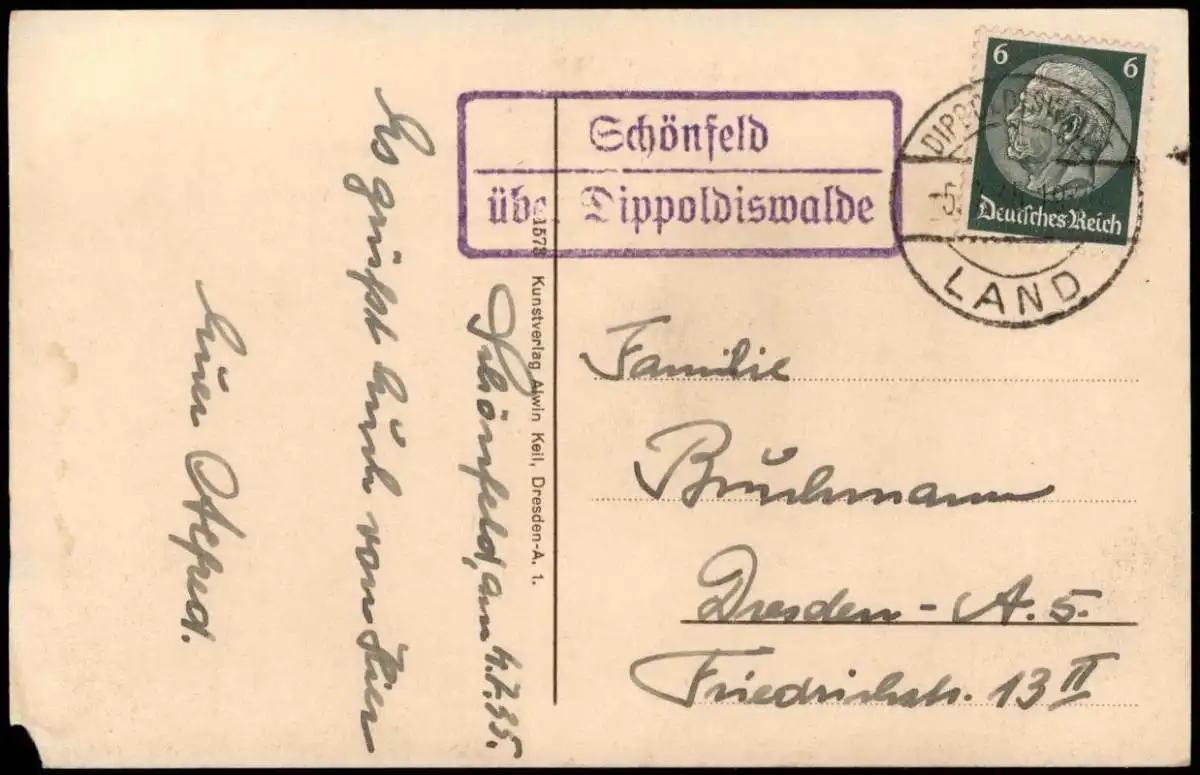 Schönfeld
über Dippoldiswalde
6 6
Deutsches Reich
DIPPOLDISWALDE
LAND
1573 Kunstverlag Alwin Keil, Dresden-A. 1.
Schönfeld, am 4.7.35.
Es grüßt Euch von hier
Euer Alfred.
Familie
Bruchmann
Dresden - A. 5.
Friedrichstr. 13 II